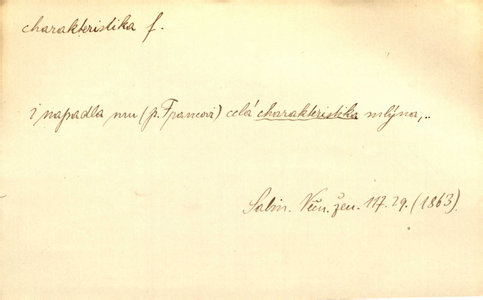 charakteristika f.
i napadla mu (p. Francovi) celá charakteristika mlýna,..
Sabin. Věn. žen. 117. 29. (1863).